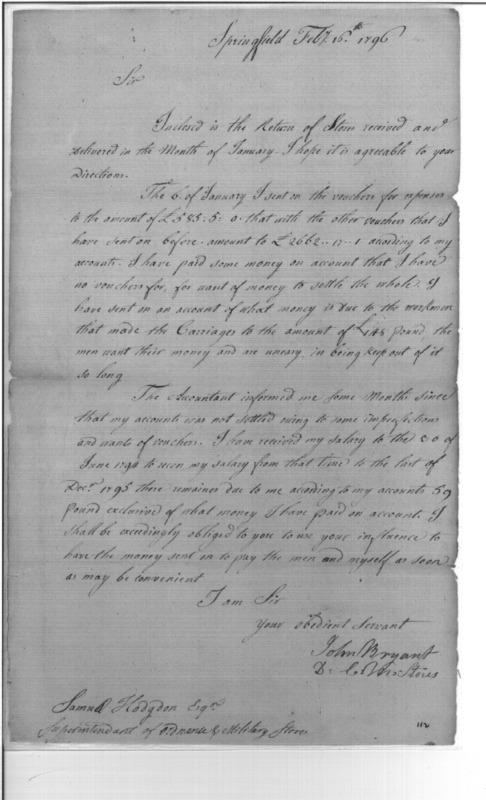 Springfield Feby. 16th 1796
Sir
Inclosed is the Return of Stores received and
delivered in the Month of January. I hope it is agreeable to your
Directions.
The 6 of January I sent on the vouchers for expenses
to the amount of £585.5.0. that with the other vouchers that I
have sent on before amount to £2662..17.1 acording to my
accounts. I have paid some money on account that I have
no vouchers for, for want of money to settle the whole. I
have sent on an account of what money is due to the workmen
that made the Carriages to the amount of £148 pound the
men want their money and are uneasy in being keep out of it
so long
The Accountant informed me some Months since
that my accounts was not settled owing to some imperfections
and wants of vouchers. I have received my salary to the 30 of
June 1794 to recon my salary from that time to the last of
Decr. 1795 there remaines due to me acording to my accounts 59
pound exclusive of what money I have paid on account. I
shall be exceedingly obliged to you to use your influence to
have the money sent on to pay the men and myself as soon
as may be convenient
I am Sir
your obedient Servant
John Bryant
Stores
Samuel Hodgdon Esqr
Superintendant of Ordnance & Military Stores
112